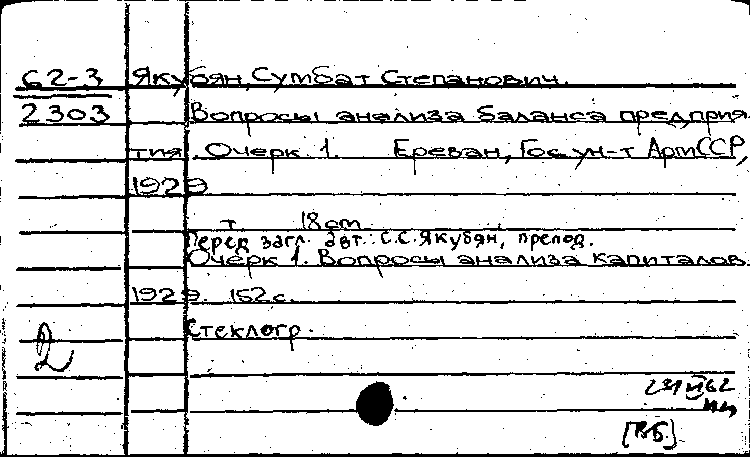 62-3 Якубян, Сумбат Степанович.
2303 Вопросы анализа баланса предприя-
тия. Очерк 1. Ереван, Гос. ун-т АрмССР,
1929
т. 18 cm.
Перед загл. авт.: С.С. Якубян, препод.
Очерк 1. Вопросы анализа капиталов.
1929. 152 с.
Стеклогр.
2
[ВБ]